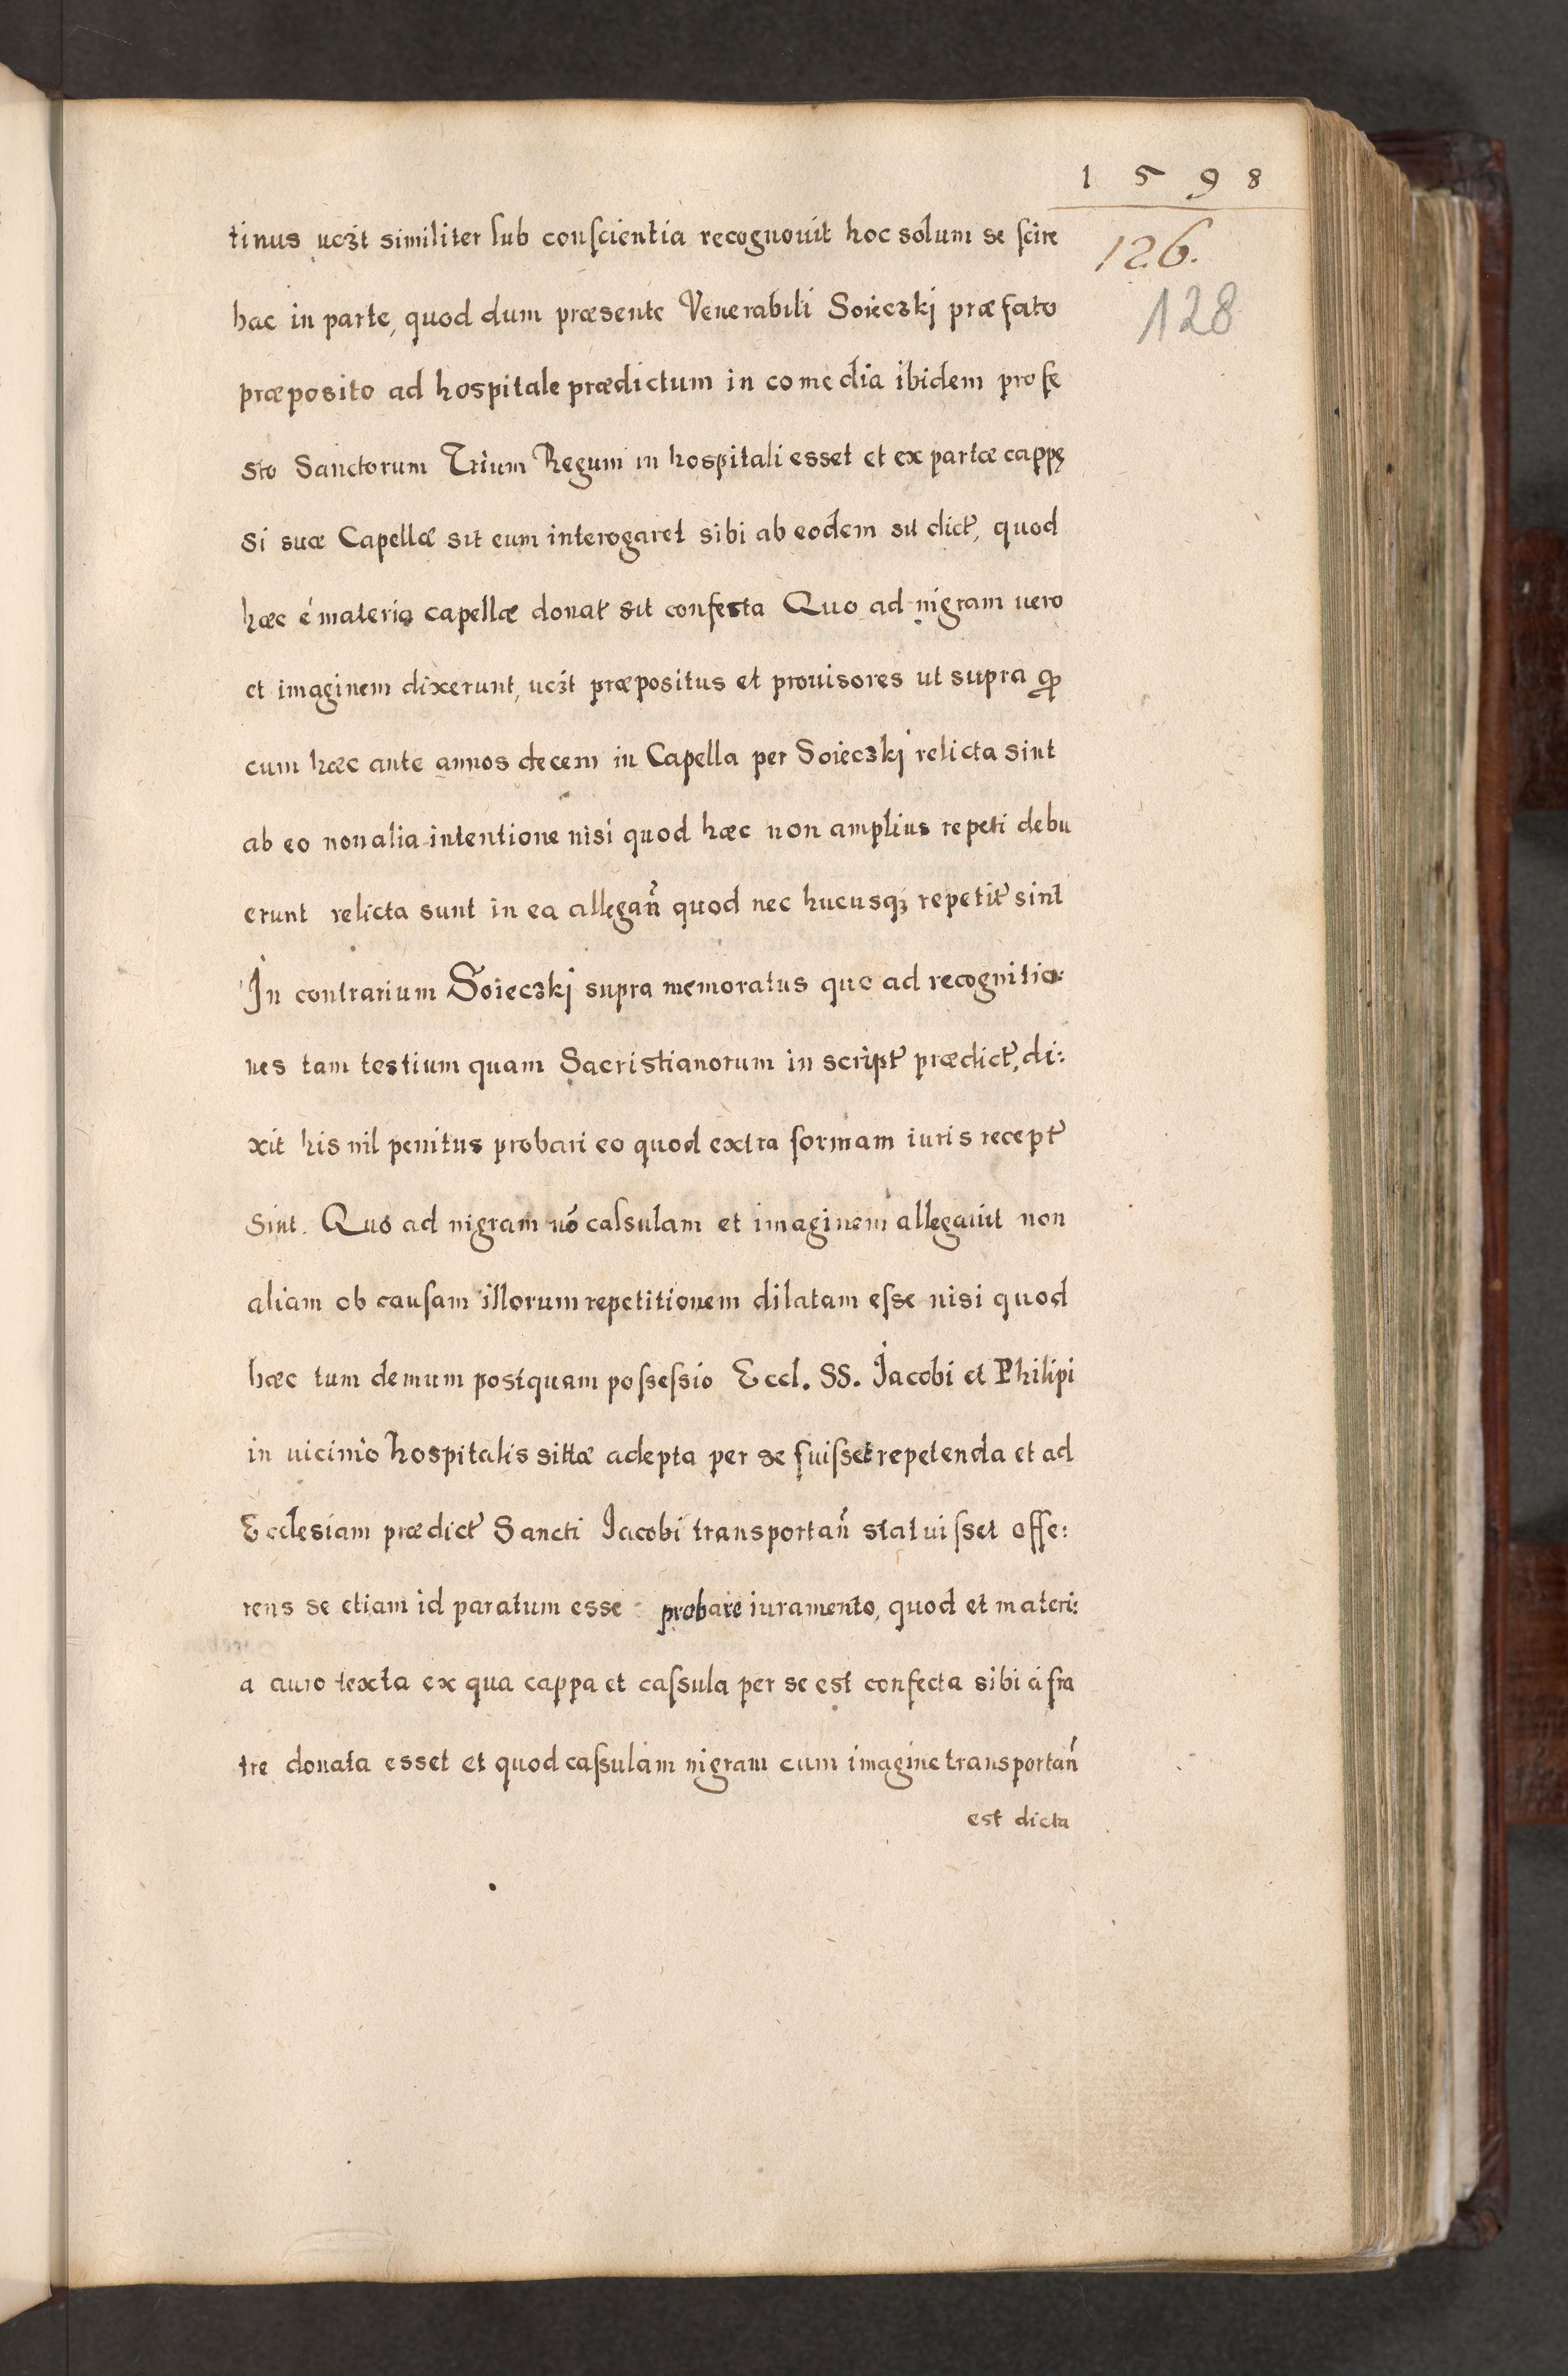 1598
126.
128
tinus uczt similiter sub conscientia recognouit hoc solum se scire
hac in parte, quod dum præsente Venerabili Soieczkj præfato
præposito ad hospitale prædictum in comedia ibidem profe
sto Sanctorum Trium Regum in hospitali esset et ex partæ cappę
si suæ Capellæ sit eum interogaret sibi ab eodem sit dict̃, quod
hæc é materia capellæ donat̃ sit confecta Quo ad nigram uero
et imaginem dixerunt, uczt præpositus et prouisores ut supra ꝙ
cum hæc ante annos decem in Capella per Soieczkj relicta sint
ab eo non alia intentione nisi quod hæc non amplius repeti debu
erunt relicta sunt in ea allegan̄ quod nec hucusqꝫ repetit̃ sint
In contrarium Soieczkj supra memoratus quo ad recognitio:
nes tam testium quam Sacristianorum in script̃ prædict̃, di:
xit his nil penitus probari eo quod extra formam iuris recept̃
sint. Quo ad nigram uō casulam et imaginem allegauit non
aliam ob causam illorum repetitionem dilatam esse nisi quod
hæc tum demum postquam possessio Eccl. SS. Jacobi et Philipi
in uicinio hospitalis sittæ adepta per se fuisset repetenda et ad
Ecclesiam prædict̃ Sancti Jacobi transportan̄ statuisset offe:
rens se etiam id paratum esse probare iuramento, quod et materi:
a auro texta ex qua cappa et cassula per se est confecta sibi á fra
tre donata esset et quod cassulam nigram cum imagine transportan̄
est dicta